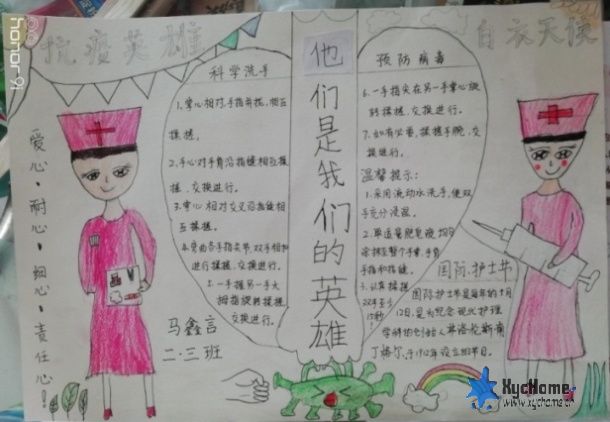 honor 9i
抗疫英雄
白衣天使
他们是我们的英雄
爱心·耐心·细心·责任心!
科学洗手
1.掌心相对,手指并拢,相互
揉搓。
2.手心对手背沿指缝相互揉
搓,交换进行。
3.掌心相对交叉沿指缝相
互揉搓。
4.弯曲各手指关节,双手相扣
进行揉搓,交换进行。
5.一手握另一大
拇指旋转揉搓,
交换进行。
马鑫言
二·三班
预防病毒
6.一手指尖在另一手掌心旋
转揉搓,交换进行。
7.如有必要,揉搓手腕,交
换进行。
温馨提示:
1.采用流动水洗手,使双
手充分浸湿。
2.取适量肥皂液,均匀
涂抹至整个手掌,手背
手指和指缝。
3.认真揉搓
双手至少
15秒!
国际·护士节
国际护士节是每年的5月
12日,是为纪念现代护理
学科的创始人弗洛伦斯南
丁格尔,于1912年设立的节日。
XycHome
www.xychome.cn